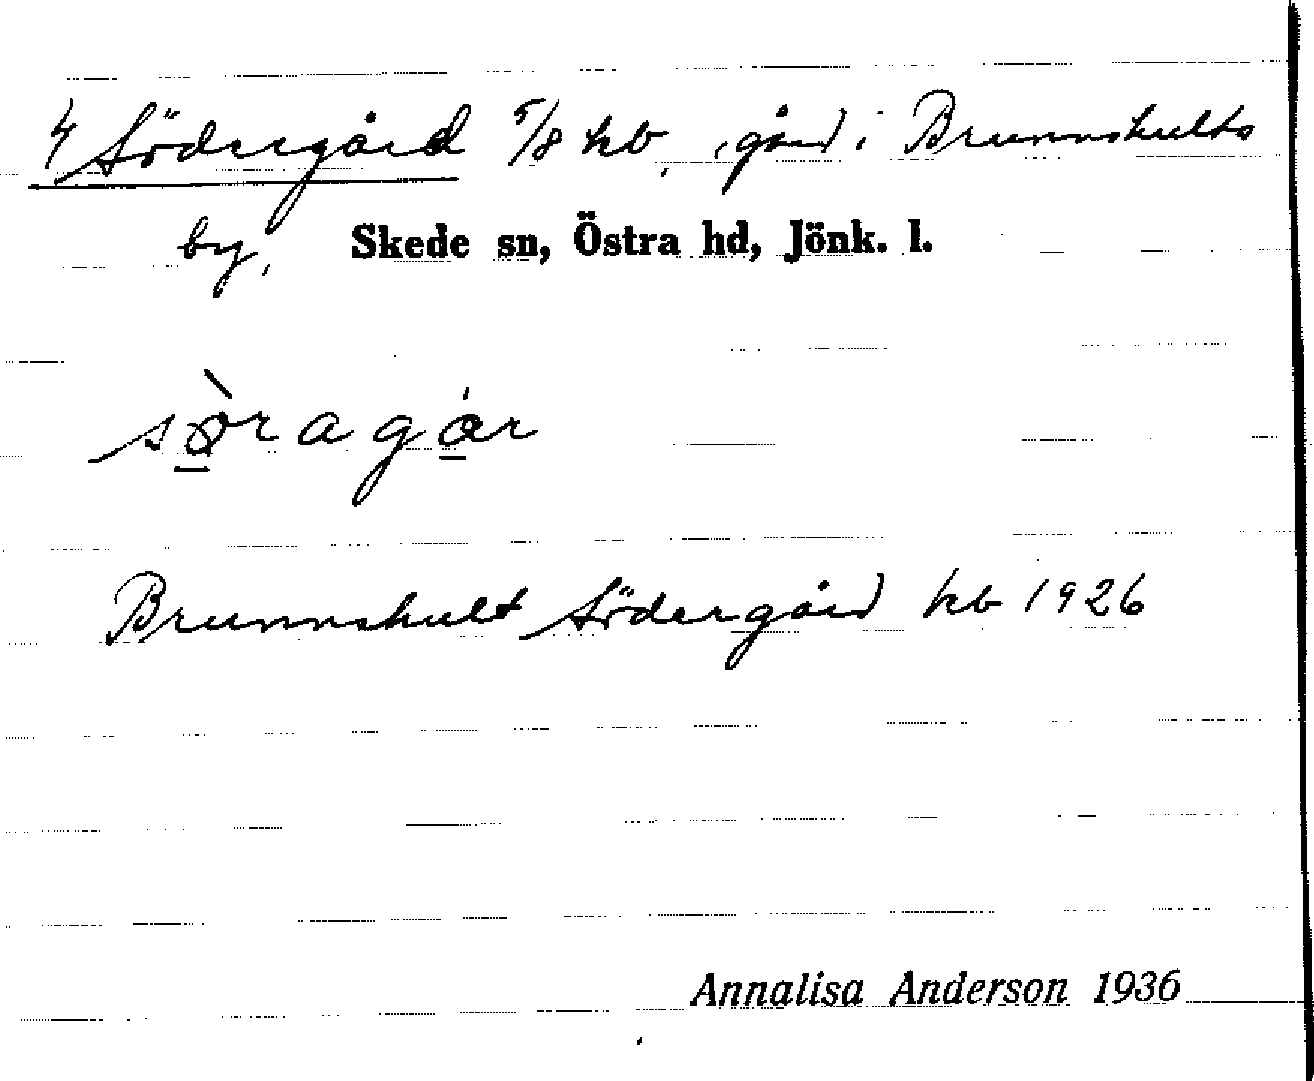 4 Södergård 5/8 hb, gård i Brunnshults
by, Skede sn, Östra hd, Jönk. l.
sö̀ragár
Brunnshult Södergård kb 1926
Annalisa Anderson 1936